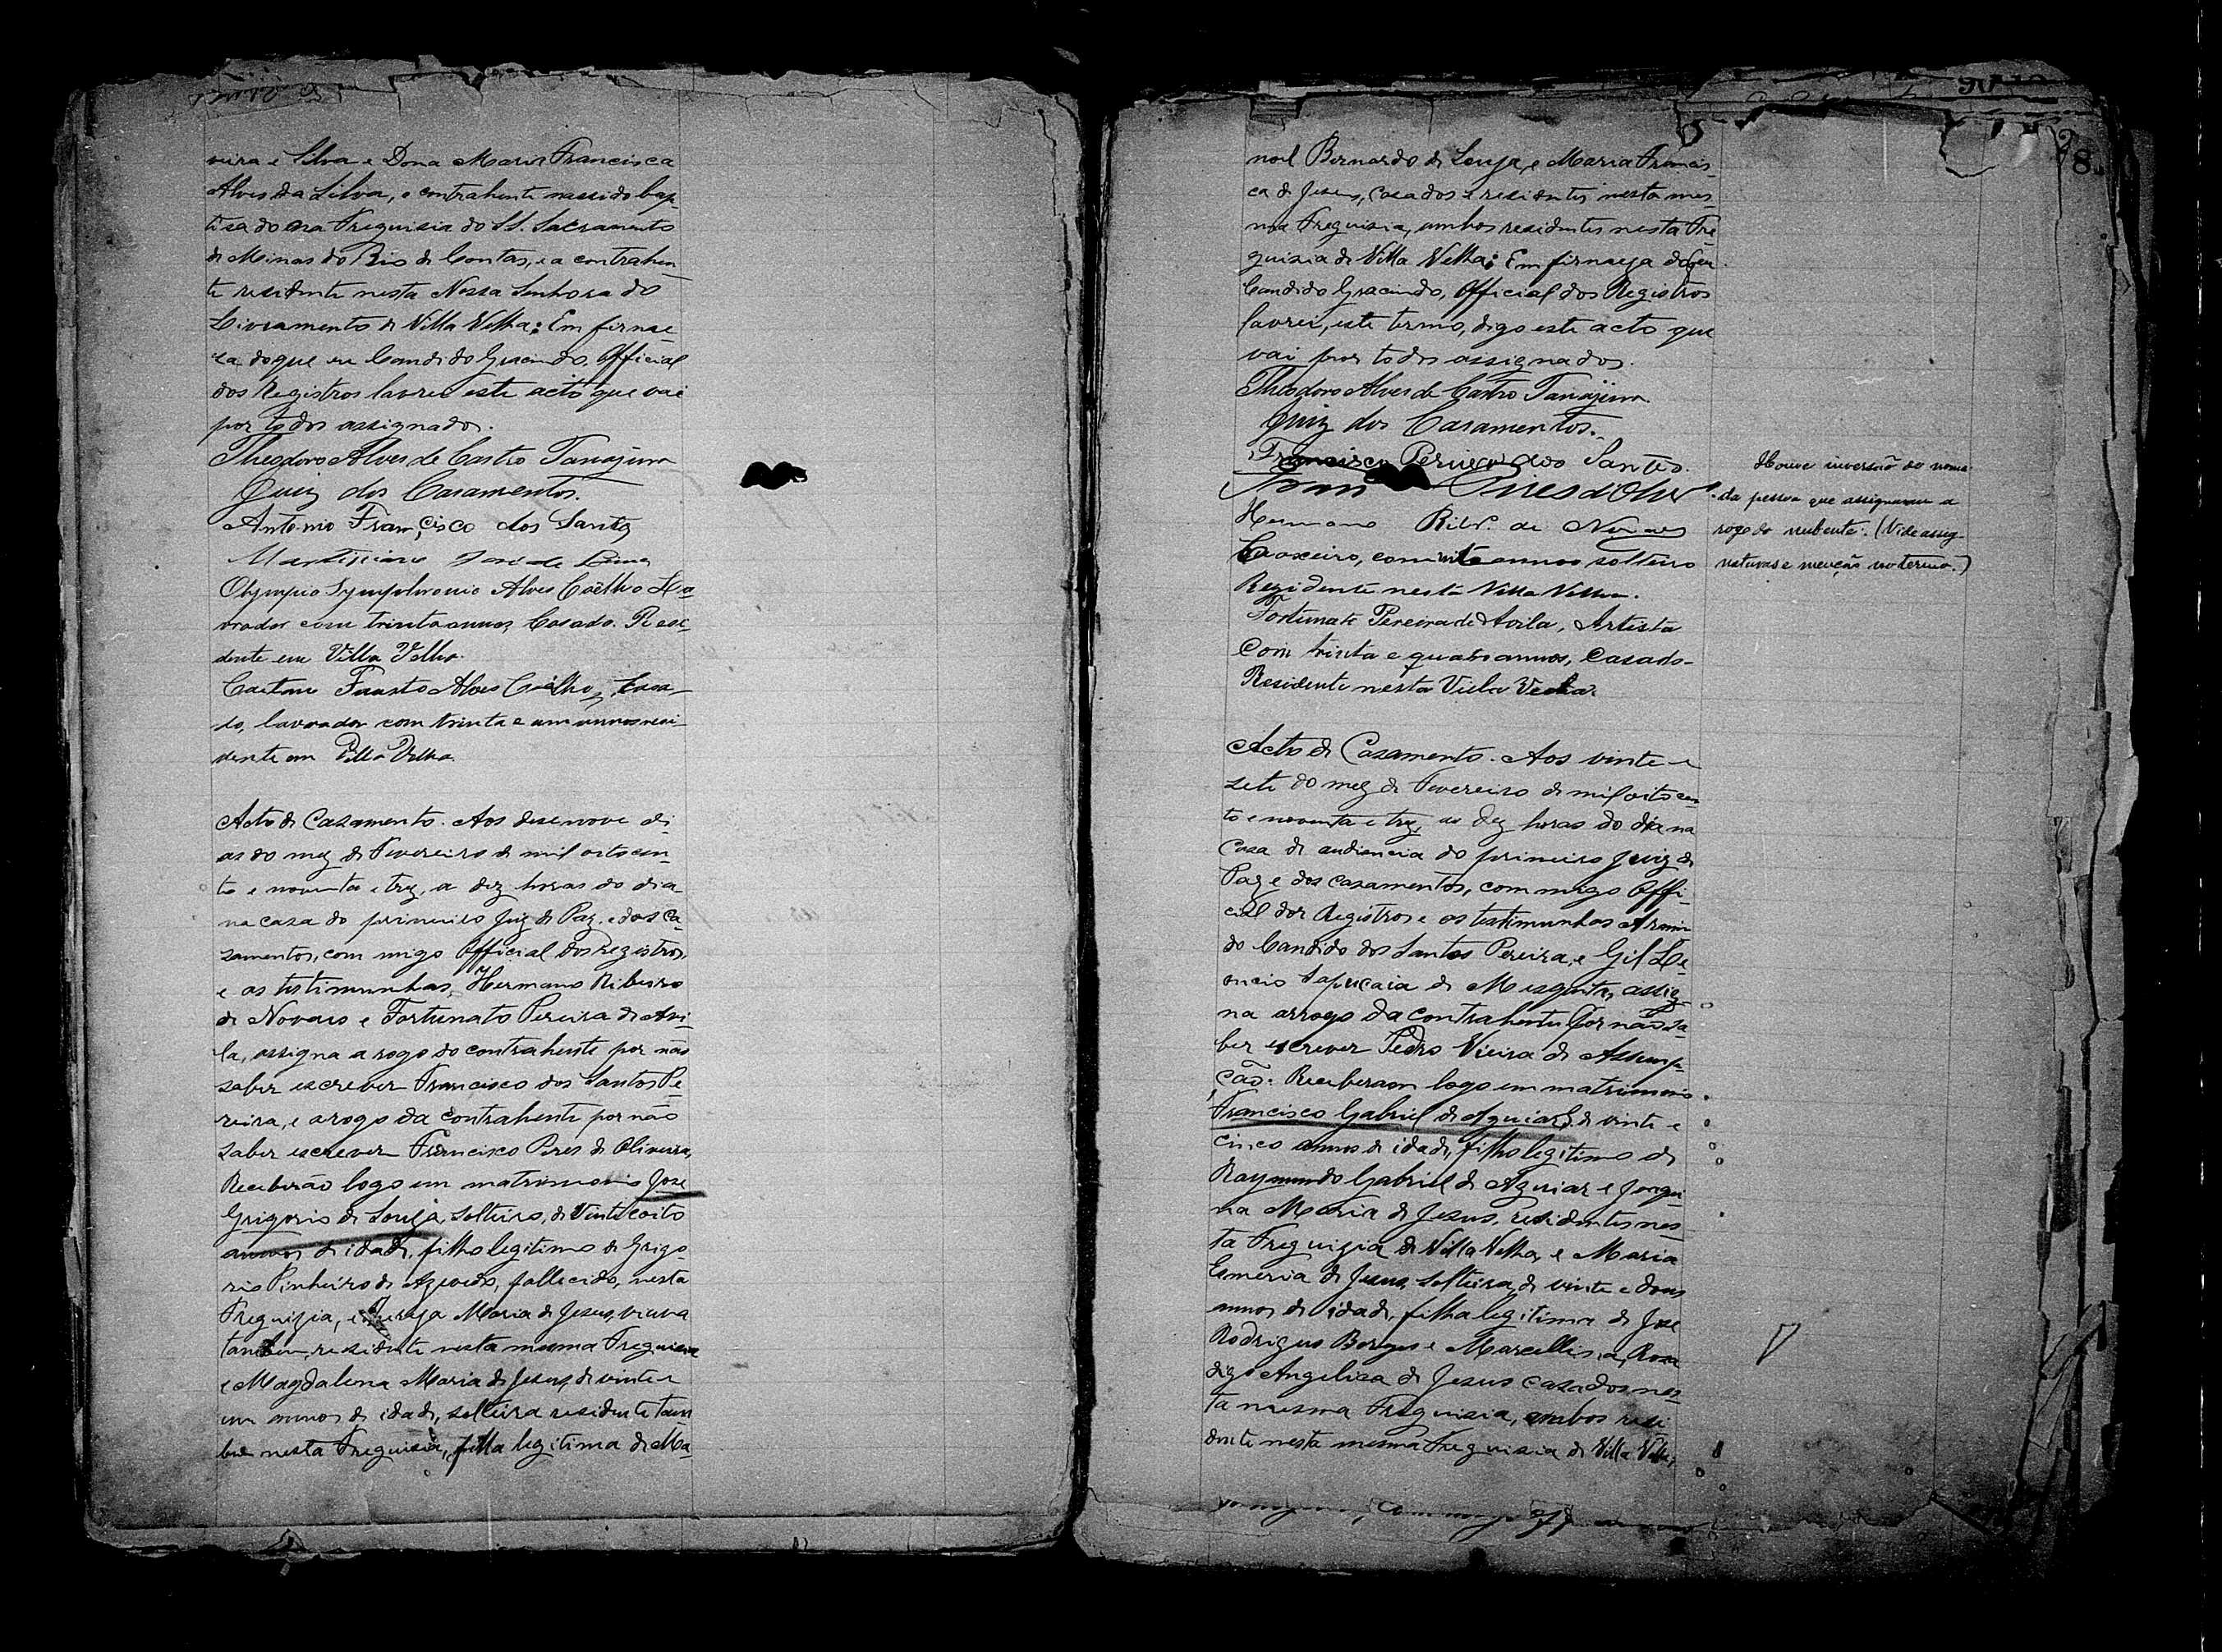 veira e Silva e Dona Maria Francisca
Alves da Silva, o contrahente nassido bap-
tisado na Freguisia do SS. Sacramento
de Minas do Rio de Contas, e a contrahen-
te residente nesta Nossa Senhora do
Livramento de Villa Velha: Em firmé-
sa do que eu Candido Gracindo, Official
dos Registros lavrei este acto que vai
por todos assignados.
Theodoro Alves de Castro Tanajura
Juiz dos Casamentos.
Antonio Francisco dos Santos
José de Lima
Olympio Symphronio Alves Coêlho La-
vrador com trinta annos, Casado. Resi-
dente em Villa Velha.
Caetano Fausto Alves Coêlho, Casa-
do, lavrador com trinta e um annos resi-
dente em Villa Velha.
Acto de Cazamento. Aos desenove di-
as do mez de Fevereiro de mil oitocen-
to e noventa e trez, a dez horas do dia
na caza do primeiro Juiz de Paz, e dos ca-
zamentos, com migo Official dos registros,
e as testimunhas, Hermano Ribeiro
de Novaes e Fortunato Pereira de Avi-
la, assigna a rogo do contrahente por não
saber escrever Francisco dos Santos Pe-
reira, e a rogo da contrahente por não
saber escrever Francisco Pires de Oliveira,
Receberão logo em matrimonio José
Grigorio de Souza, solteiro, de vinte e oito
annos de idade, filho legitimo de Grigo-
rio Pinheiro de Azevedo, fallecido, nesta
Freguizia, e Thereza Maria de Jesus, viuva
tambem, residente nesta mesma Freguisia
e Magdalena Maria de Jesus, de vinte e
um annos de idade, solteira residente tam
bem nesta Freguisia, filha legitima de Ma-
noel Bernardo de Souza, e Maria Francis-
ca de Jesus, Casados e residentes nesta mes-
ma Freguisia, ambos residentes nesta Fre-
guizia de Villa Velha: Em firmeza do q eu
Candido Gracindo, Official dos Registros
lavrei, este termo, digo este acto que
vai por todos assignados.
Theodoro Alves de Castro Tanajura.
Juiz dos Casamentos.
Francisco Pereira dos Santos.
Fran Pires d'Olivr
Hermano Ribr. de Novaes
Caixeiro, com vinte annos solteiro
Rezidente nesta Villa Velha.
Fortunato Pereira de Avila, Artista
Com trinta e quatro annos, Casado-
Residente nesta Villa Velha.
Houve inversão do nome
da pessoa que assignaram a
rogo do nubente. (Vide assig-
naturas e menção no termo.)
Acto de Cazamento. Aos vinte e
sete do mez de Fevereiro de mil oitocen
to e noventa e trez, as dez horas do dia na
Casa de audiencia do primeiro Juiz de
Paz e dos cazamentos, com migo Offi-
cial dos Registros e as testimunhas Armin
do Candido dos Santos Pereira, e Gil Le-
oncio Sapucaia de Mesquita, assig-
na arrogo da contrahente por não sa-
ber escrever Pedro Vieira de Assump-
ção: Receberam logo em matrimonio
Francisco Gabriel de Aguiar, de vinte e
cinco annos de idade, filho legitimo de
Raymundo Gabriel de Aguiar e Joaqui
na Maria de Jesus, residentes nes-
ta Freguizia de Villa Velha, e Maria
Esmeria de Jesus, solteira, de vinte e dous
annos de idade, filha legitima de José
Rodrigues Borges e Marcellina Rosa
digo Angelica de Jesus cazados nes-
ta mesma Freguisia, ambos resi-
dente nesta mesma Freguisia de Villa Velha,